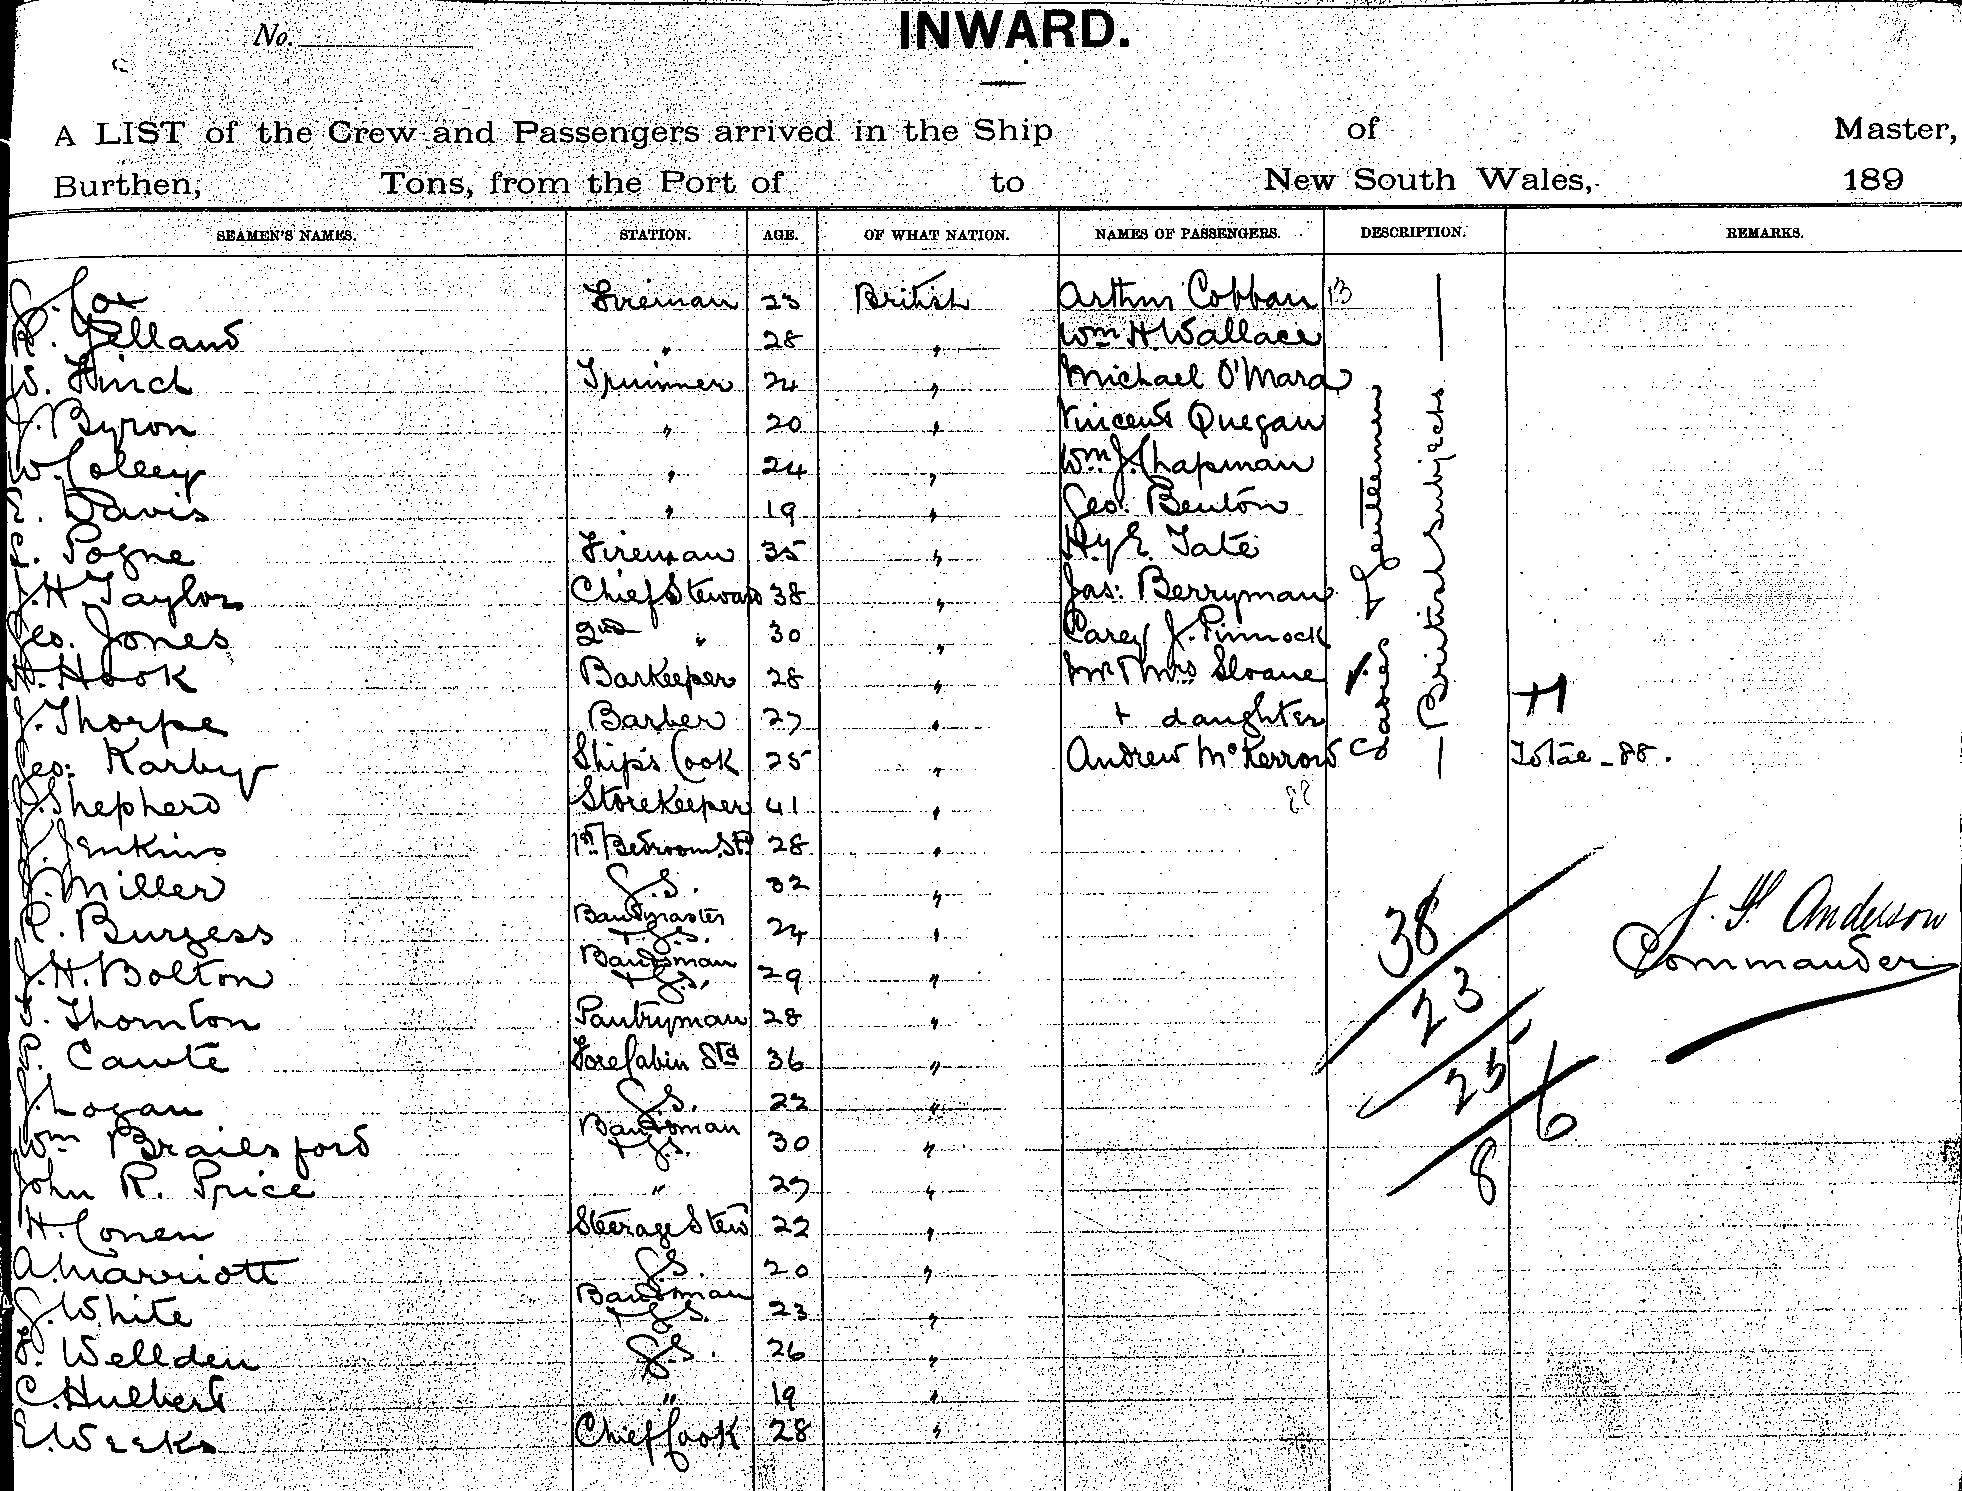 No.
INWARD.
A LIST of the Crew and Passengers arrived in the Ship of Master,
Burthen, Tons, from the Port of to New South Wales, 189
SEAMEN'S NAMES. STATION. AGE. OF WHAT NATION. NAMES OF PASSENGERS. DESCRIPTION. REMARKS.
J. Cox Fireman 23 British Arthur Cobban 13
R. Yelland " 28 " Wm H. Wallace
W. Hinch Trimmer 24 " Michael O'Mara
J. Byron " 20 " Vincent Quegan
W. Colley " 24 " Wm J. Chapman
E. Davis " 19 " Geo. Benton
Pogne Fireman 35 " Hy E. Tate
J. H. Taylor Chief Steward 38 " Jas: Berryman
Geo. Jones 2nd " 30 " Carey J. Pinnock
H. Hook Barkeeper 28 " Mr & Mrs Sloane
J. Thorpe Barber 27 " + daughter
Geo: Karby Ship's Cook 25 " Andrew McKerrow Total - 88.
J. Shepherd Storekeeper 41 " 88
J. Jenkins 1st Bedroom Std 28 "
J. Miller G.S. 32 "
R. Burgess Bandmaster + G.S. 24 "
J. H. Bolton Bandsman + G.S. 29 "
T. Thornton Pantryman 28 "
P. Cawte Fore Cabin Std 36 "
J. Logan G.S. 22 "
Wm Brailsford Bandsman + G.S. 30 "
John R. Price " 27 "
H. Conen Steerage Stew 22 "
A. Marriott G.S. 20 "
G. White Bandsman + G.S. 23 "
F. Wellden G.S. 26 "
C. Hulbert " 19 "
E. Weeks Chief Cook 28 "
Ladies & Gentlemen
— British Subjects —
38
23
25
6
8
J. H. Anderson
Commander